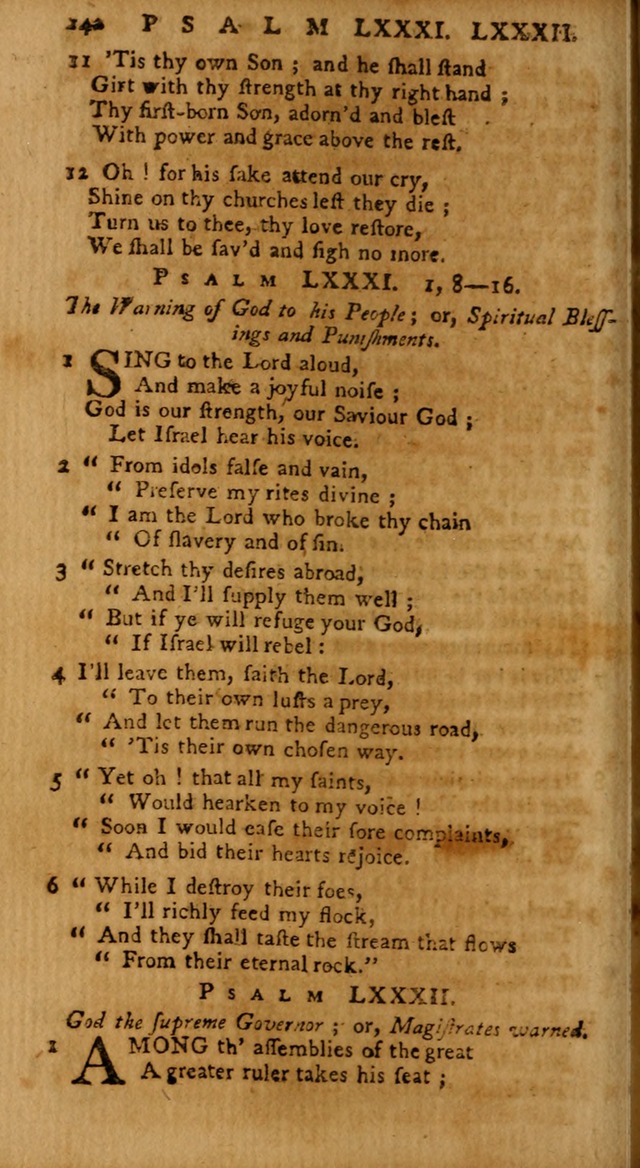 142 PSALM LXXXI. LXXXII.
11 'Tis thy own Son ; and he ſhall ſtand
Girt with thy ſtrength at thy right hand ;
Thy firſt-born Son, adorn'd and bleſt
With power and grace above the reſt.
12 Oh ! for his ſake attend our cry,
Shine on thy churches leſt they die ;
Turn us to thee, thy love reſtore,
We ſhall be ſav'd and ſigh no more.
PSALM LXXXI. 1, 8—16.
The Warning of God to his People ; or, Spiritual Bleſſ-
ings and Puniſhments.
1 SING to the Lord aloud,
And make a joyful noiſe ;
God is our ſtrength, our Saviour God ;
Let Iſrael hear his voice.
2 “ From idols falſe and vain,
“ Preſerve my rites divine ;
“ I am the Lord who broke thy chain
“ Of ſlavery and of ſin.
3 “ Stretch thy deſires abroad,
“ And I'll ſupply them well ;
“ But if ye will refuge your God,
“ If Iſrael will rebel :
4 I'll leave them, ſaith the Lord,
“ To their own luſts a prey,
“ And let them run the dangerous road,
“ 'Tis their own choſen way.
5 “ Yet oh ! that all my ſaints,
“ Would hearken to my voice !
“ Soon I would eaſe their ſore complaints,
“ And bid their hearts rejoice.
6 “ While I deſtroy their foes,
“ I'll richly feed my flock,
“ And they ſhall taſte the ſtream that flows
“ From their eternal rock.”
PSALM LXXXII.
God the ſupreme Governor ; or, Magiſtrates warned.
1 AMONG th' aſſemblies of the great
A greater ruler takes his ſeat ;